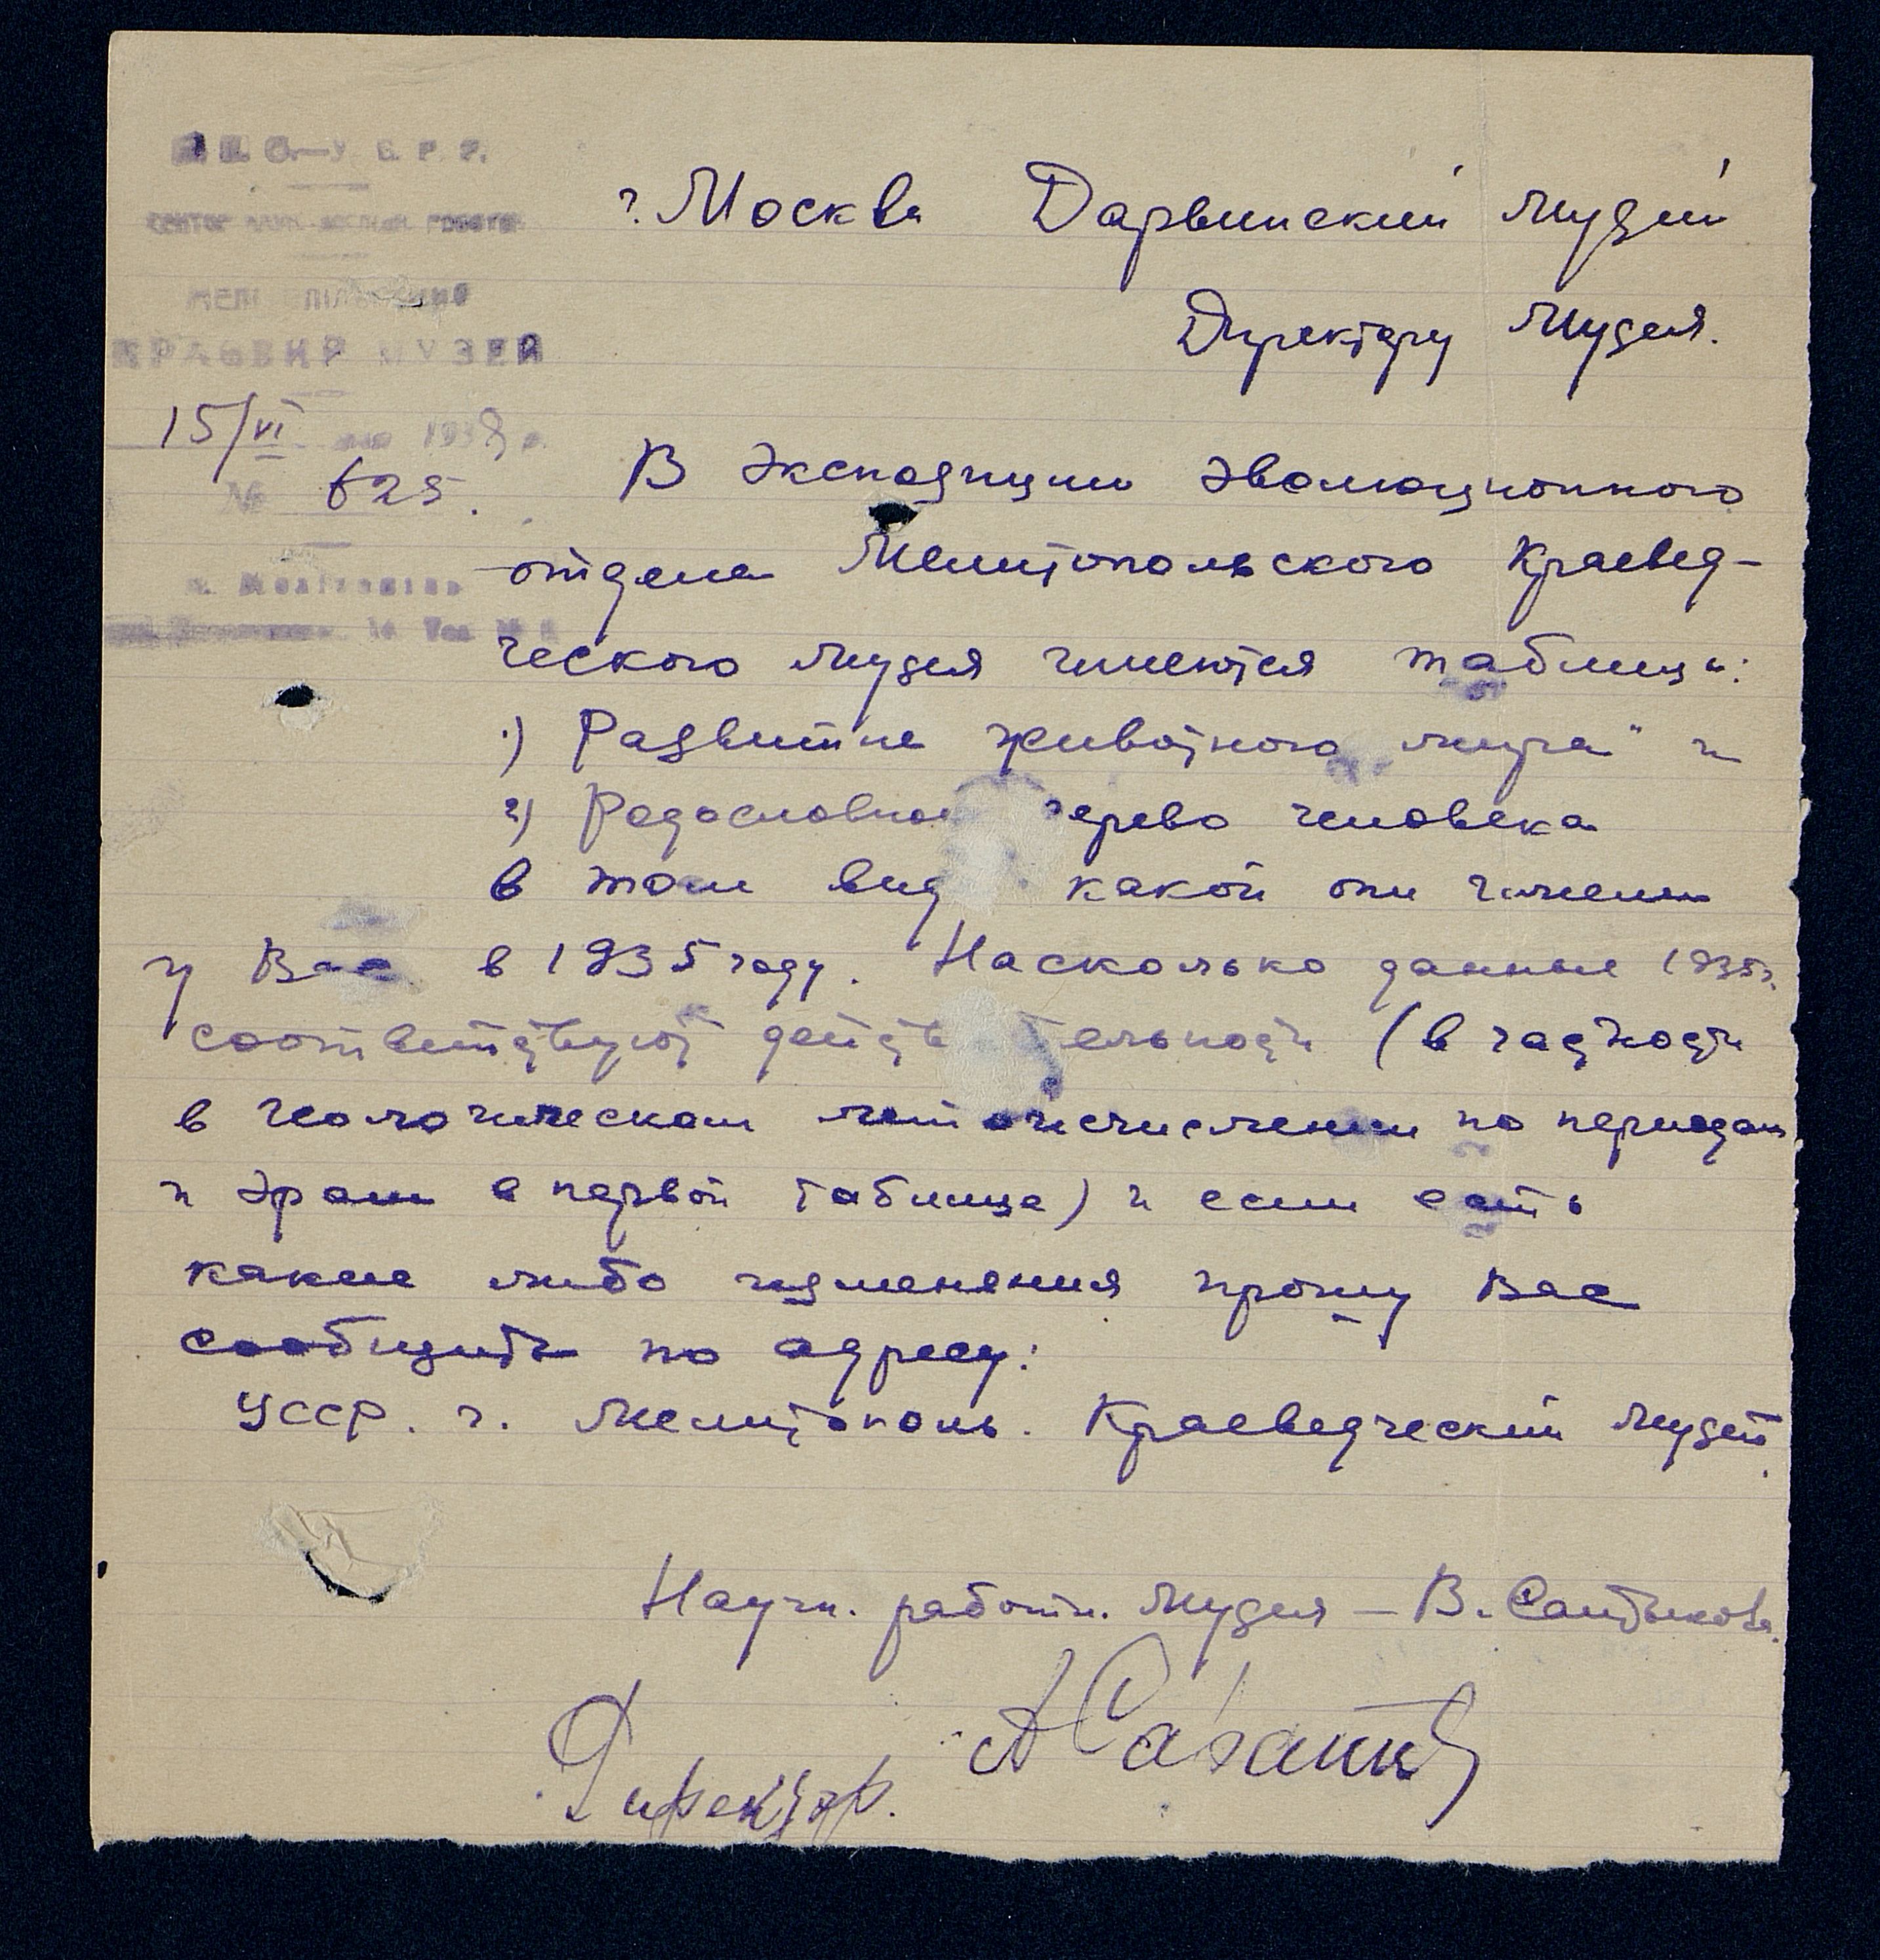 У. С. Р. Р.
КРАЄВИЙ МУЗЕЙ
15/VI 1938 р.
№ 625.
г. Москва Дарвинский музей
Директору музея.
В экспозиции эволюционного
отдела Мелитопольского Краевед-
ческого музея имеются таблицы:
1) Развитие животного мира" и
2) Родословное дерево человека
в том вид какой они имели
у Вас в 1935 году. Насколько данные 1935 г.
соответствуют действ тельности (в частности
в геологическом летоисчислении по периодам
и эрам в первой таблице) и если есть
какие либо изменения прошу Вас
сообщить по адресу:
УССР. г. Мелитополь. Краеведческий музей.
Научн. работн. музея – В.
Директор.